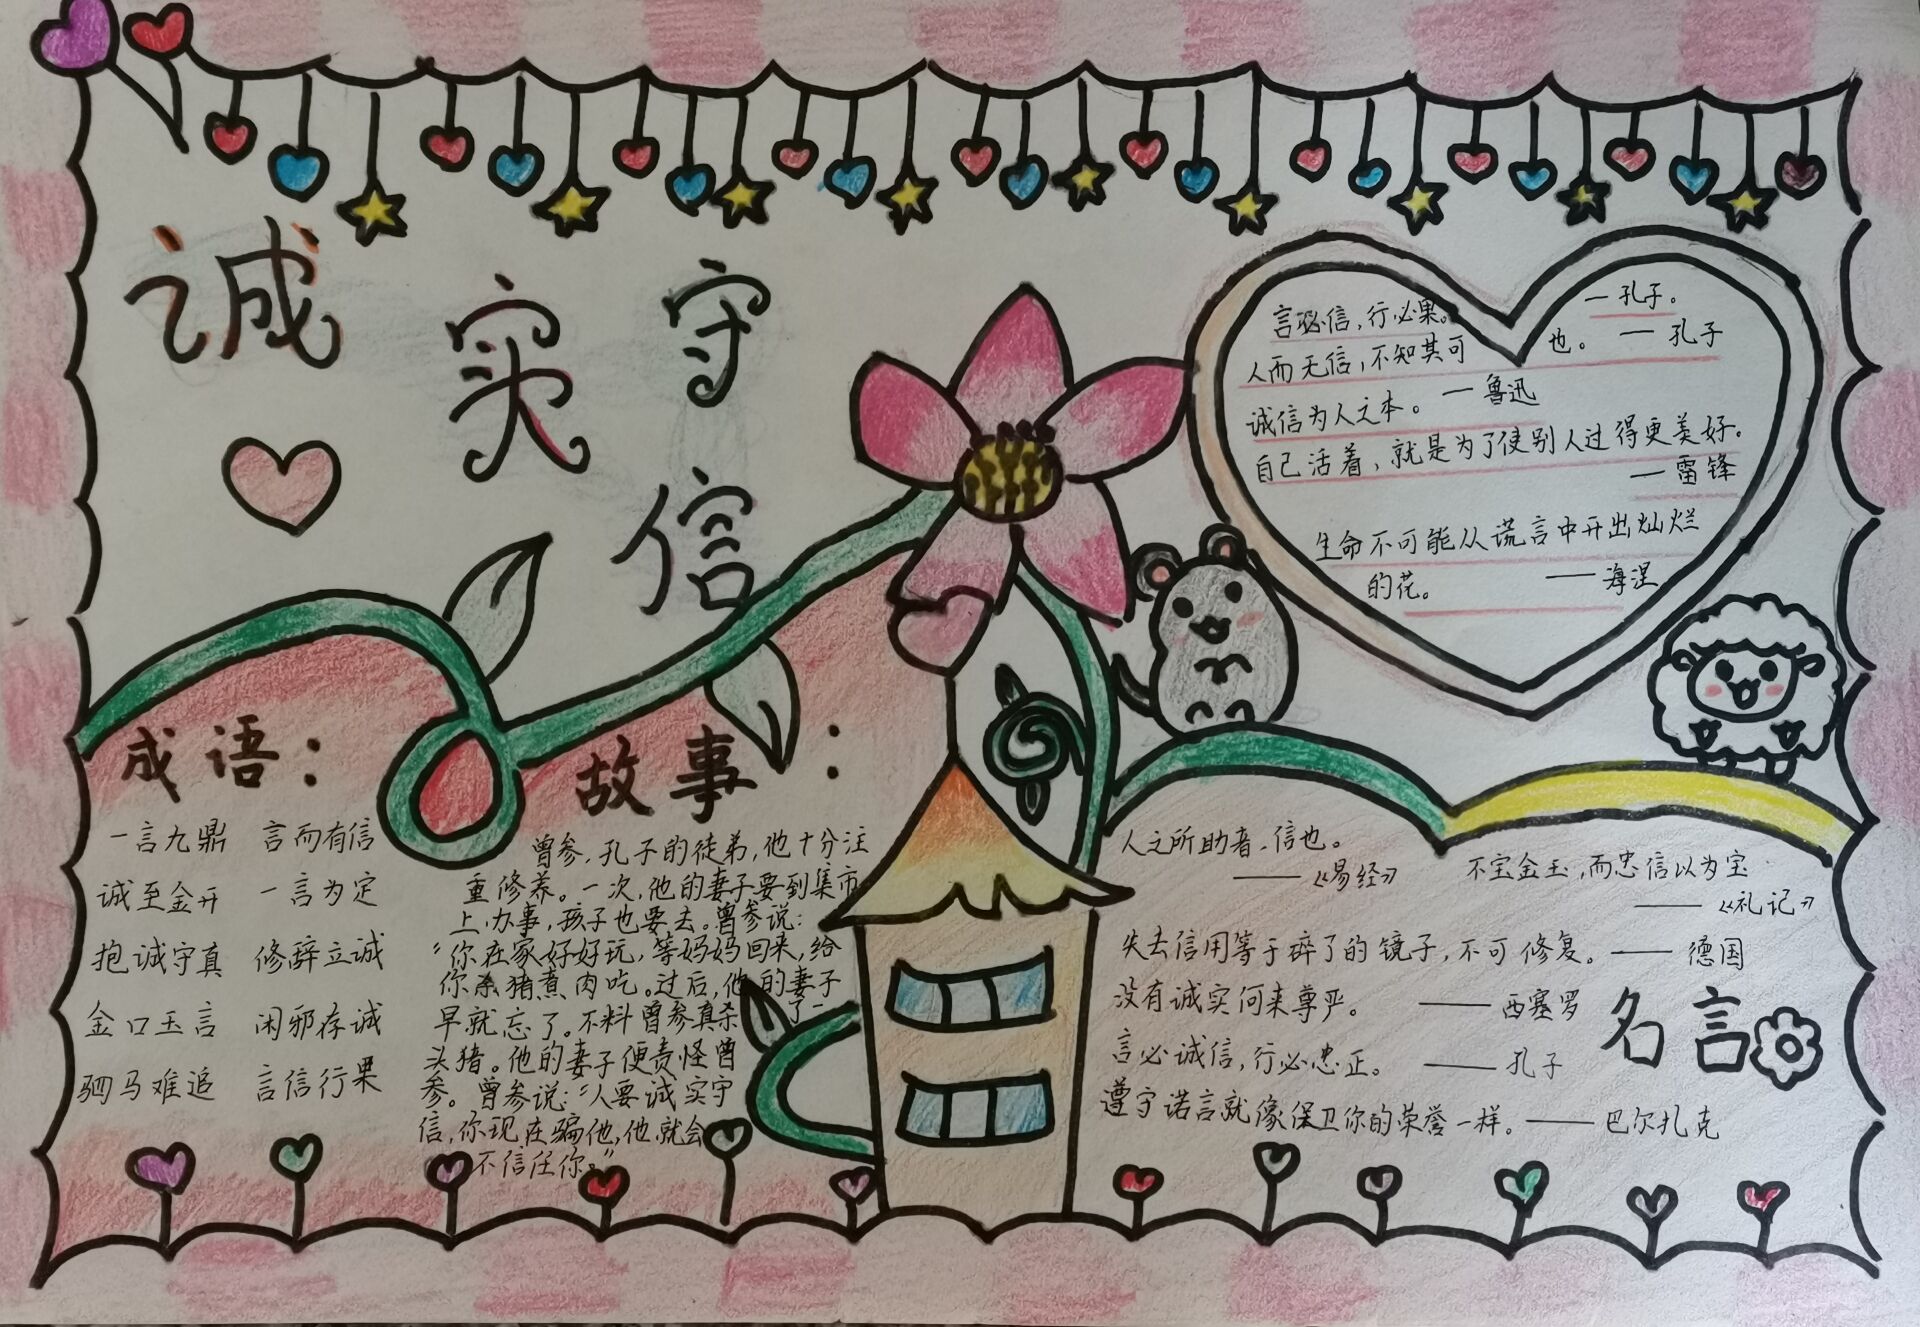 诚实守信
言必信，行必果。 — 孔子。
人而无信，不知其可也。 — 孔子
诚信为人之本。 — 鲁迅
自己活着，就是为了使别人过得更美好。
— 雷锋
生命不可能从谎言中开出灿烂
的花。 —— 海涅
成语：
一言九鼎 言而有信
诚至金开 一言为定
抱诚守真 修辞立诚
金口玉言 闲邪存诚
驷马难追 言信行果
故事：
曾参，孔子的徒弟，他十分注
重修养。一次，他的妻子要到集市
上办事，孩子也要去。曾参说：
“你在家好好玩，等妈妈回来，给
你杀猪煮肉吃。过后，他的妻子
早就忘了。不料曾参真杀了一
头猪。他的妻子便责怪曾
参。曾参说：“人要诚实守
信，你现在骗他，他就会
不信任你。”
人之所助者，信也。
——《易经》
不宝金玉，而忠信以为宝
——《礼记》
失去信用等于碎了的镜子，不可修复。—— 德国
没有诚实何来尊严。 —— 西塞罗
言必诚信，行必忠正。 —— 孔子
遵守诺言就像保卫你的荣誉一样。—— 巴尔扎克
名言